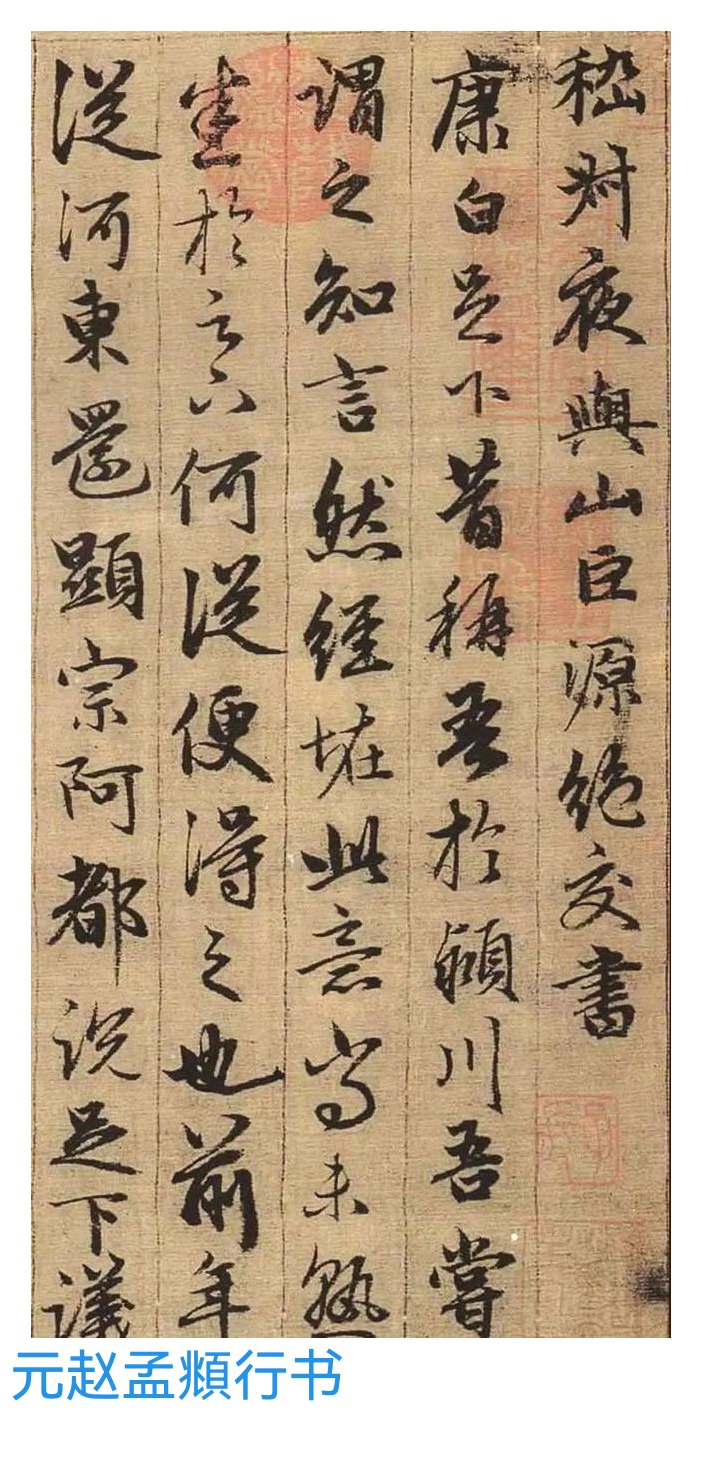 嵇叔夜與山巨源絶交書
康白足下昔稱吾於潁川吾嘗
謂之知言然經恠此意尚未熟
悉於足下何從便得之也前年
從河東還顯宗阿都説足下議
元赵孟頫行书